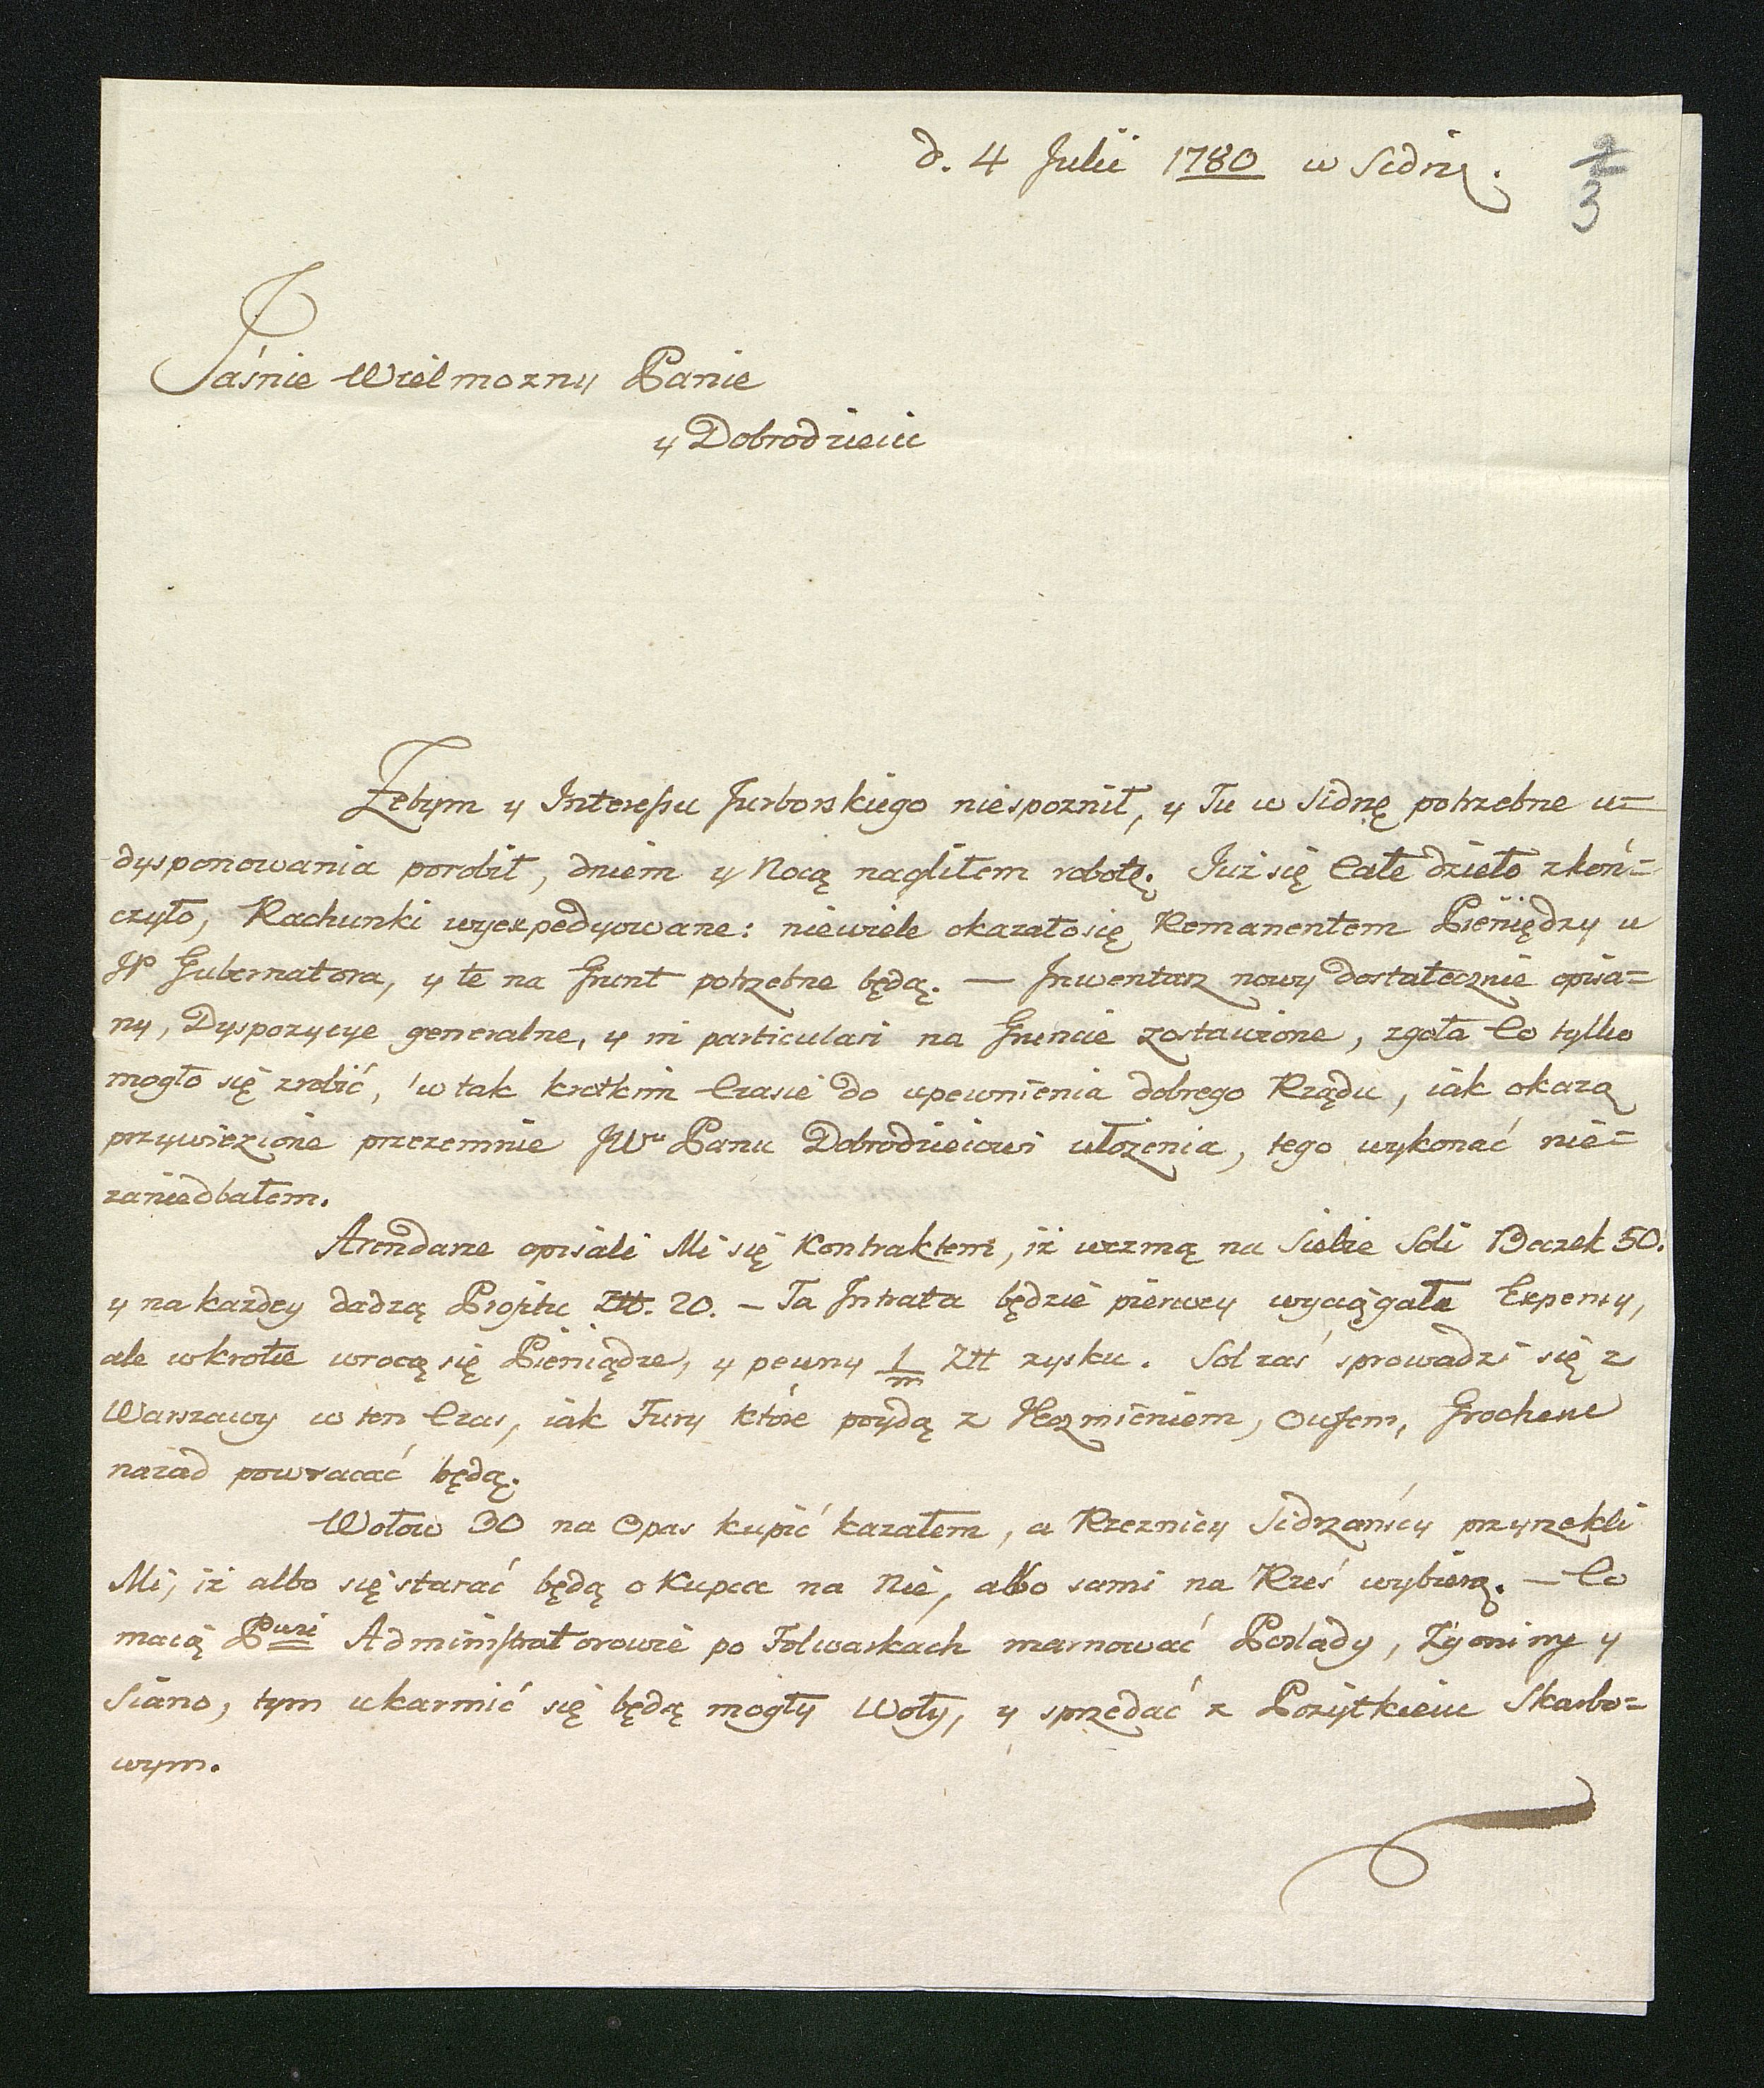 d. 4 Julii 1780 w Sidrz.
2
3
Jaśnie Wielmozny Panie
y Dobrodzieiu
Zebym y Interessu Jurborskiego niespoznił, y Tu w Sidrzę potrzebne u=
dysponowania porobił, dniem y Nocą nagliłem robotę. Juz się Całe dzieło zkoń=
czyło, Rachunki wyexpedyowane: niewiele okazało się Remanentem Pieniędzy u
JP Gubernatora, y te na Grunt potrzebne będą. — Inwentarz nowy dostatecznie opisa=
ny, Dyspozycye generalne, y in particulari na Gruncie zostawione, zgoła Co tylko
mogło się zrobić, w tak krotkim Czasie do upewnienia dobrego Rządu, iak okazą
przywiezione przezemnie JWu Panu Dobrodzieiowi ułozenia, tego wykonać nie=
zaniedbałem.
Arendarze opisali Mi się Kontraktem, iz wezmą na Siebie Soli Beczek 50.
y na kazdey dadzą Profitu Złł. 20. — Ta Intrata będzie pierwey wyciągała Expensy,
ale wkrotce wrocą się Pieniądze, y pewny 1/m Złł zysku. Sol zaś sprowadzi się z
Warszawy w ten Czas, iak Fury które poydą z Jęczmieniem, Owsem, Grochem
nazad powracać będą.
Wołow 30 na Opas kupić kazałem, a Rzeznicy Sidrzańscy przyrzekli
Mi, iz albo się starać będą o Kupca na Nie, albo sami na Rzeź wybiorą. — Co
maią Pwie Administratorowie po Folwarkach marnować Poslady, Zgoniny y
Siano, tym ukarmić się będą mogły Woły, y sprzedać z Pozytkiem Skarbo=
wym.